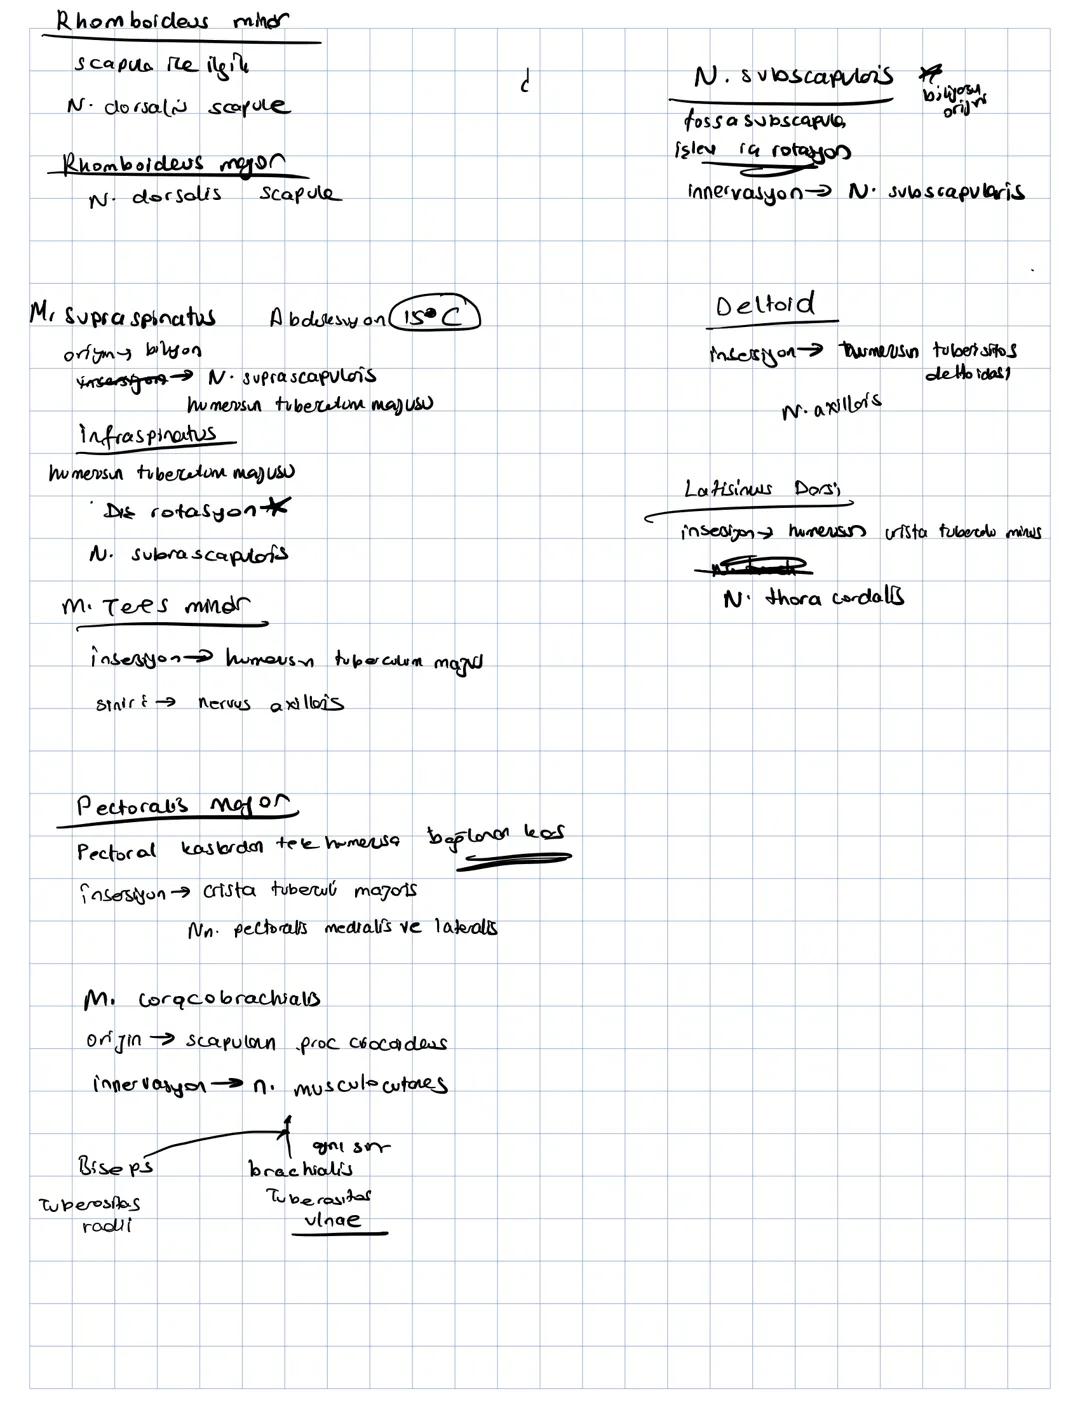 Rhomboideus minör
scapula ile ilgili
N. dorsalis scapule
Rhomboideus major
N. dorsalis scapule
M. Supraspinatus Abdüksiyon 15°C
origin → biliyon
insersiyon → N. suprascapularis
humerusun tuberculum majusu
infraspinatus
humerusun tuberculum majusu
Dış rotasyon *
N. subrascapularis
M. Teres minör
insersiyon → humerusun tuberculum majus
siniri → nervus axillaris
Pectoralis major
Pectoral kaslardan tek humerusa bağlanan kas
insersiyon → crista tuberculi majoris
Nn. pectoralis medialis ve lateralis
M. coracobrachialis
origin → scapulanın proc crocoideus
innervasyon → n. musculocutares
aynı sinir
Biseps brachialis
Tuberositas radii
Tuberositas ulnae
N. subscapularis *
biliyosun origini
fossa subscapula
işlevi iç rotasyon
innervasyon → N. subscapularis
Deltoid
insersiyon → humerusun tuberisitas
deltoidası
N. axillaris
Latisimus Dorsi
insesiyon → humerusun crista tuberculu minus
N. thoracordalis